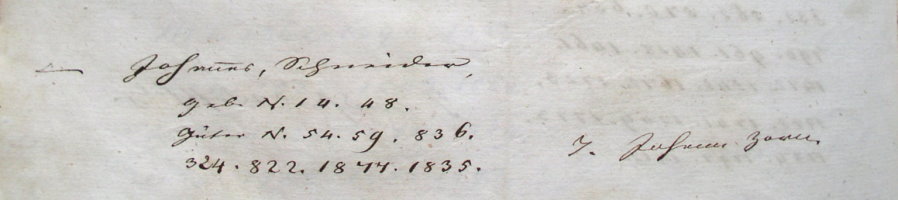 Johannes, Schneider,
geb. N. 14. 48.
Güter N. 54. 59. 836.
324. 822. 1877. 1835.
7. Johann Zorn.